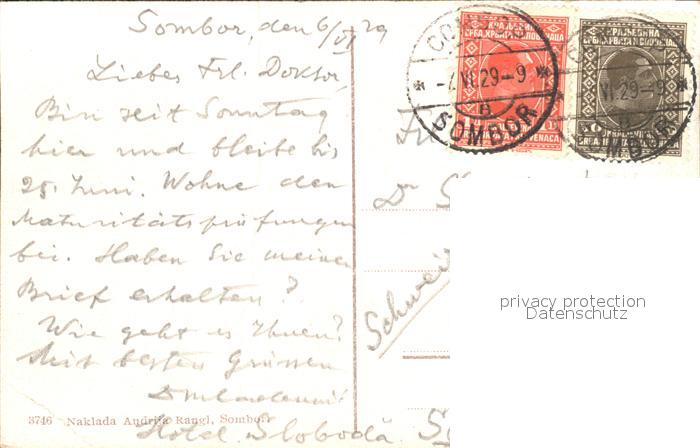 Sombor, den 6/VI 29
Liebes Frl. Doktor,
Bin seit Sonntag
hier und bleibe bis
25. Juni. Wohne den
Maturitätsprüfungen
bei. Haben Sie meinen
Brief erhalten?
Wie geht es Ihnen?
Mit besten Grüssen
Hotel Sloboda
3746 Naklada Andrija Rangl, Sombor
КРАЉЕВИНА
СРБА, ХРВАТА И СЛОВЕНАЇА
КРАЉЕВИНА
СРБА, ХРВАТА И СЛОВЕНАЦА
-7.VI.29-9
SOMBOR
VI.29-9
Dr
Schweiz
privacy protection
Datenschutz